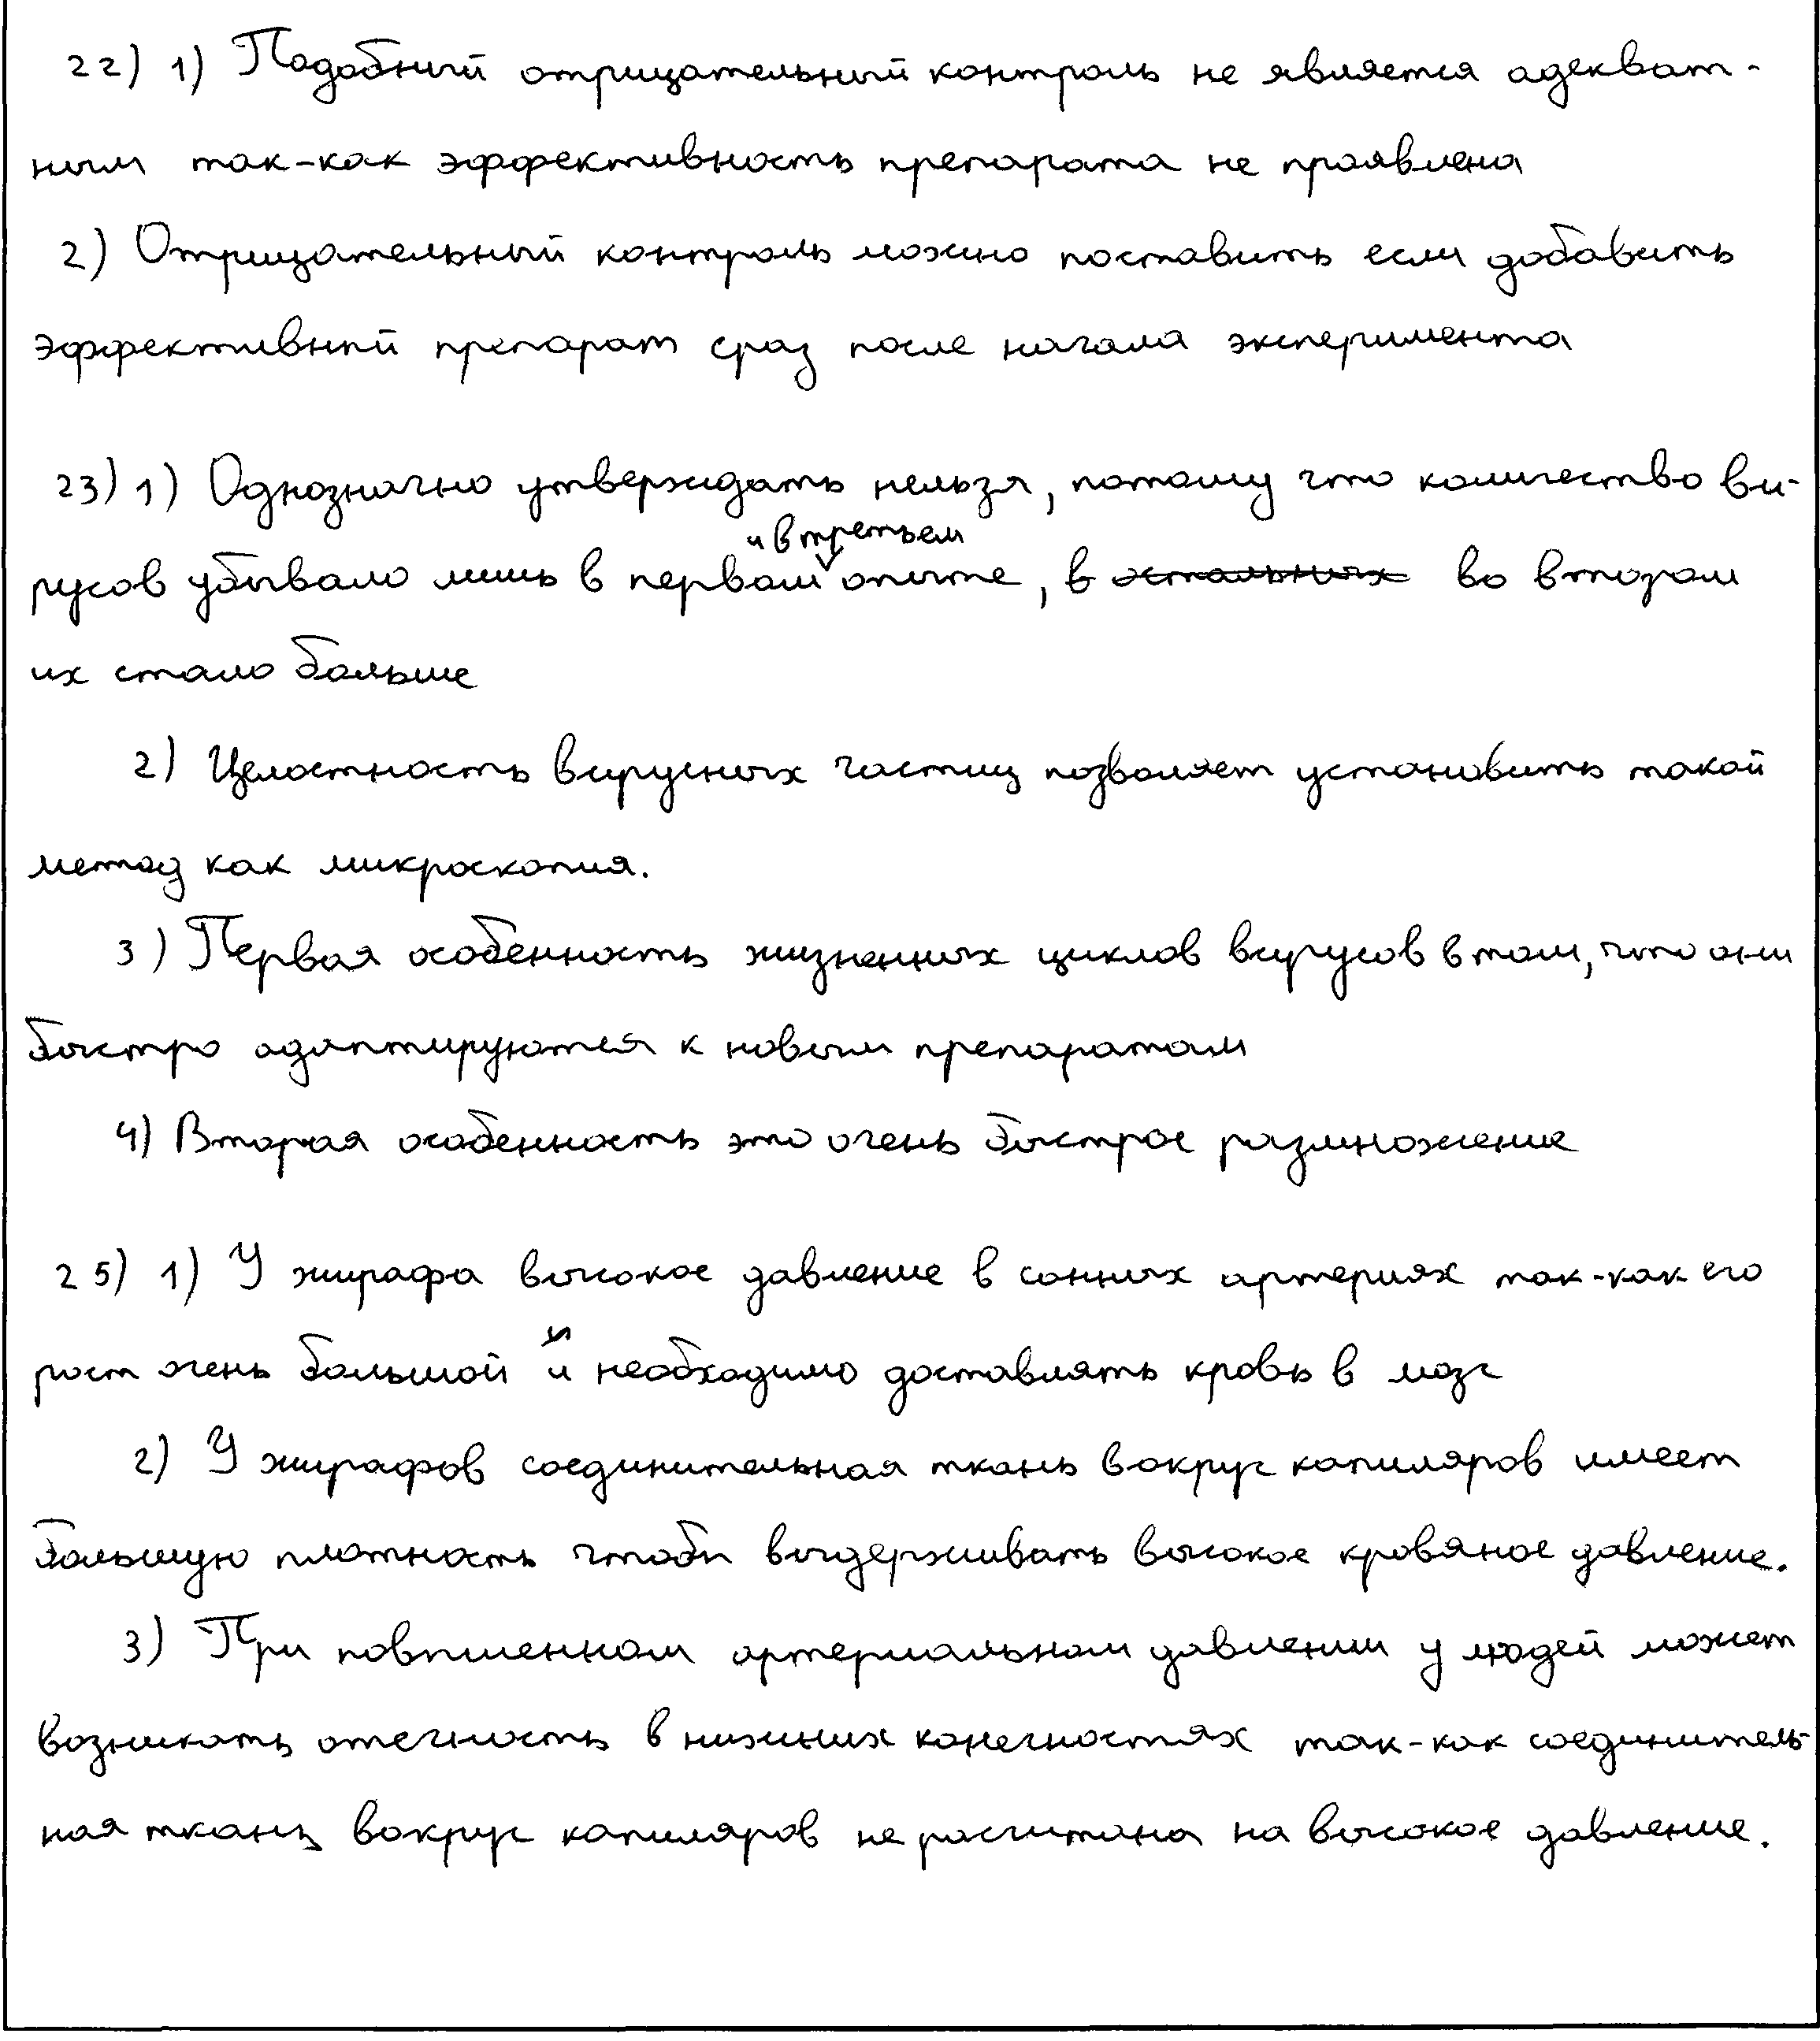 22) 1) Подобный отрицательный контроль не является адекват-
ным так-как эффективность препарата не проявлена
2) Отрицательный контроль можно поставить если добавить
эффективный препарат сраз после начала эксперимента
23) 1) Однозначно утверждать нельзя, потому что количество ви-
и в третьем
русов убывало лишь в первом опыте, в остальных во втором
их стало больше
2) Целостность вирусных частиц позволяет установить такой
метод как микроскопия.
3) Первая особенность жизненных циклов вирусов в том, что они
быстро адаптируются к новым препаратам
4) Вторая особенность это очень быстрое размножение
25) 1) У жирафа высокое давление в сонных артериях так-как его
рост очень большой и необходимо доставлять кровь в мозг
2) У жирафов соединительная ткань вокруг капиляров имеет
большую плотность чтобы выдерживать высокое кровяное давление.
3) При повышенном артериальном давлении у людей может
возникать отечность в нижних конечностях так-как соединитель-
ная ткань вокруг капиляров не расчитана на высокое давление.